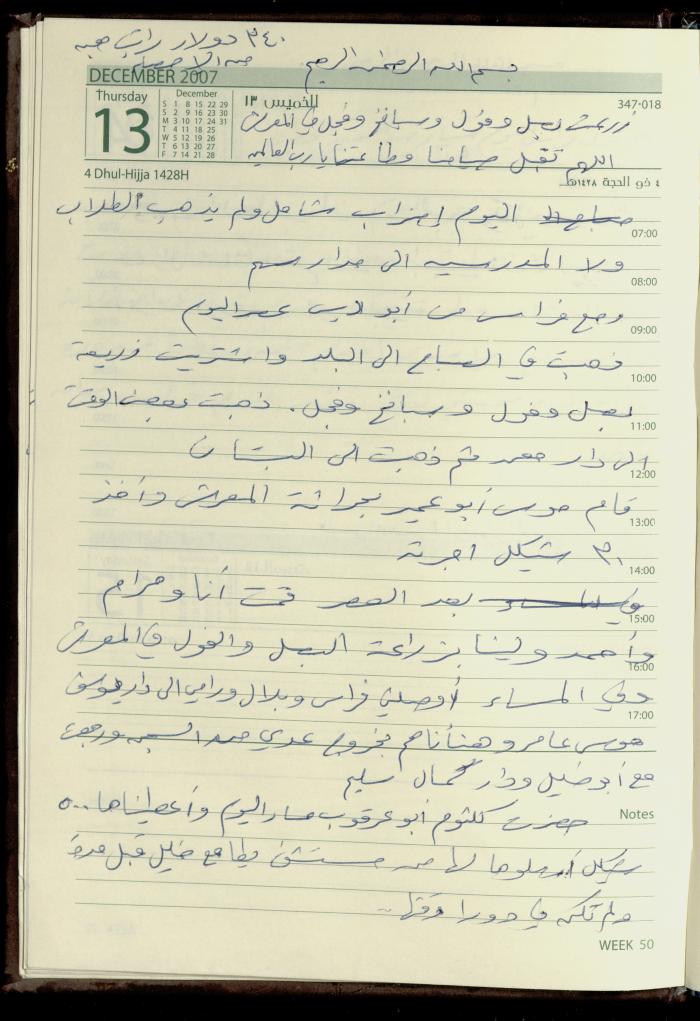 ٣٤٠ دولار راتب هبه
من الاحصاء
بسم الله الرحمن الرحيم
DECEMBER 2007
Thursday
13
December
S 1 8 15 22 29
S 2 9 16 23 30
M 3 10 17 24 31
T 4 11 18 25
W 5 12 19 26
T 6 13 20 27
F 7 14 21 28
الخميس ١٣
347-018
زرعت بصل وفول وسبانخ وفجل في المعرش
اللهم تقبل صيامنا وطاعتنا يا رب العالمين
4 Dhul-Hijja 1428H
٤ ذو الحجة ١٤٢٨هـ
اليوم إضراب شامل ولم يذهب الطلاب
07:00
ولا المدرسين الى مدارسهم
08:00
رجع فراس من أبو ديس عصر اليوم
09:00
ذهبت في الصباح الى البلد واشتريت زريعة
10:00
بصل وفول وسبانخ وفجل. ذهبت بعض الوقت
11:00
الى دار حمد ثم ذهبت الى البستان
12:00
قام موسى أبو عمير بحراثة المعرش وأخذ
13:00
٣٠ شيكل اجرته
14:00
بعد العصر قمت أنا ومرام
15:00
وأحمد ولينا بزراعة البصل والفول في المعرش
16:00
وفي المساء أوصلني فراس وبلال ورامي الى دار
17:00
موسى عامر وهنأناهم بخروج عدي من السجن ورجعت
مع أبو خليل ودار كمال سليم
Notes
حضرت كلثوم أبو عرقوب مساء اليوم وأعطيناها ٥٠٠
شيكل لها من مستشفى مع خليل قبل مدة
ولم تكن في دورا وقتها..
WEEK 50